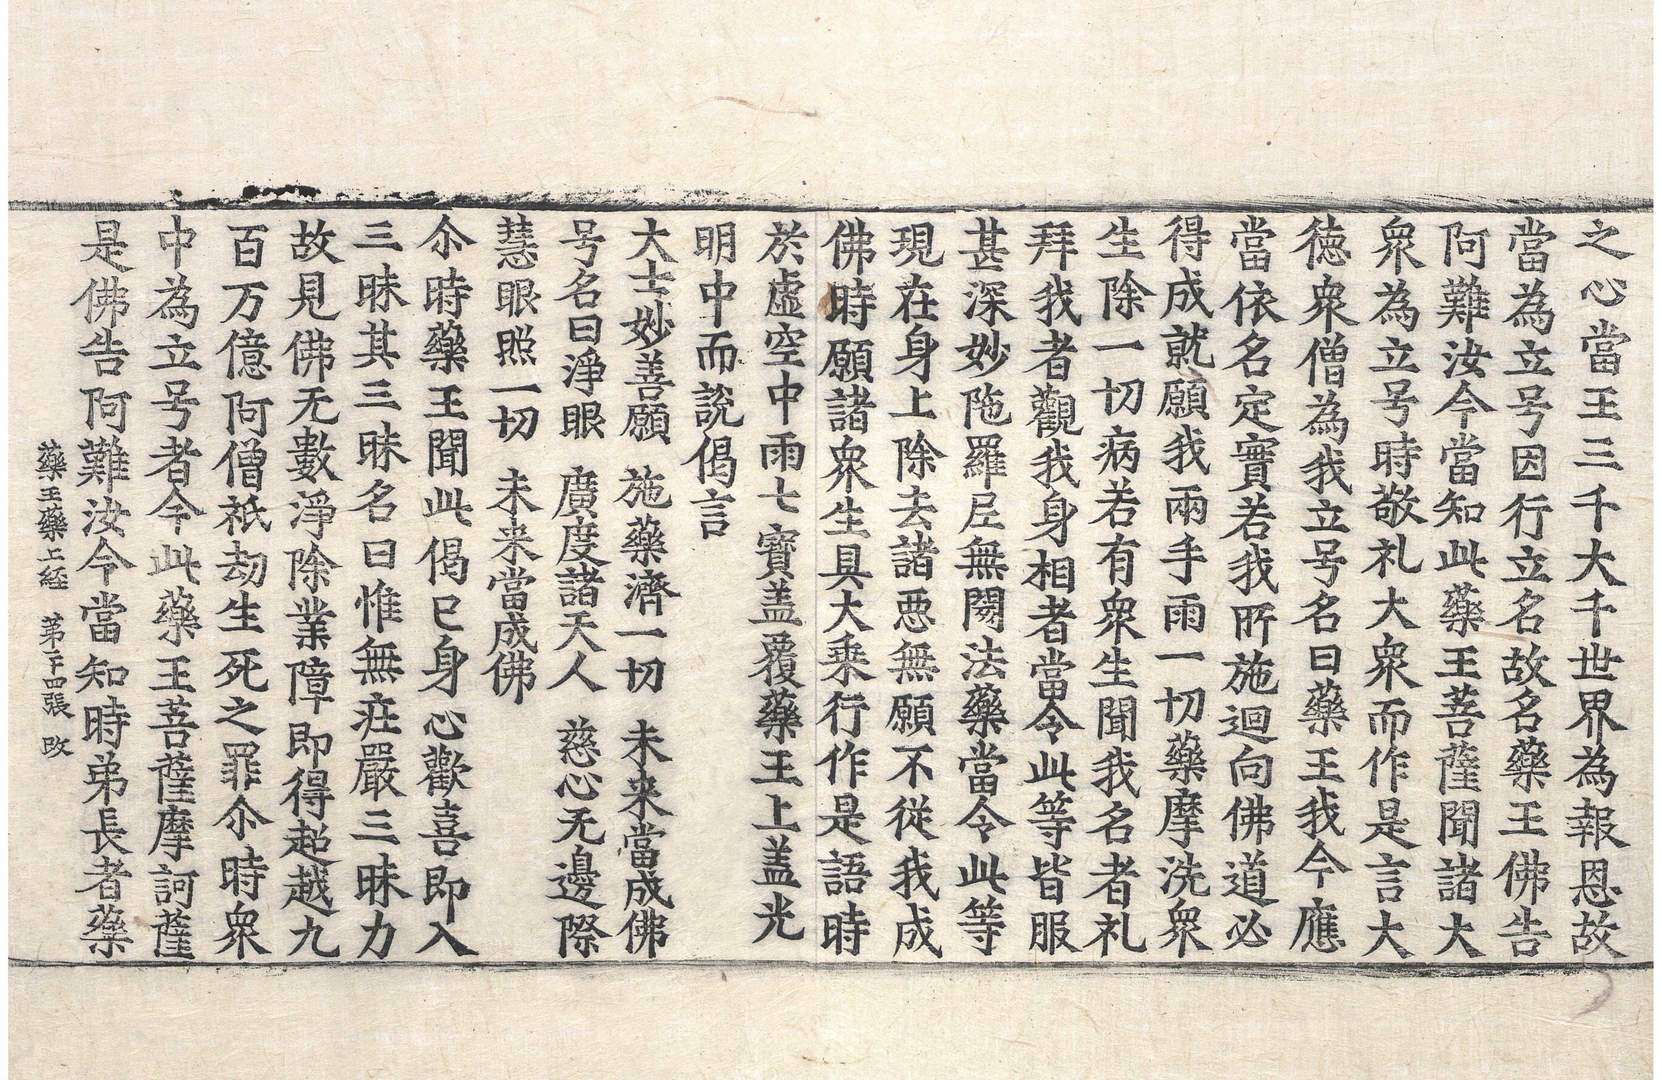 之心當王三千大千世界為報恩故
當為立号因行立名故名藥王佛告
阿難汝今當知此藥王菩薩聞諸大
衆為立号時敬礼大衆而作是言大
徳衆僧為我立号名曰藥王我今應
當依名定實若我所施迴向佛道必
得成就願我兩手雨一切藥摩洗衆
生除一切病若有衆生聞我名者礼
拜我者觀我身相者當令此等皆服
甚深妙陁羅尼無閡法藥當令此等
現在身上除去諸惡無願不從我成
佛時願諸衆生具大乘行作是語時
於虛空中雨七寶盖覆藥王上盖光
明中而說偈言
大士妙善願　施藥濟一切　未来當成佛
号名曰淨眼　廣度諸天人　慈心无邊際
慧眼照一切　未来當成佛
尒時藥王聞此偈已身心歡喜即入
三昧其三昧名曰惟無莊嚴三昧力
故見佛无數淨除業障即得超越九
百万億阿僧祇劫生死之罪尒時衆
中為立号者今此藥王菩薩摩訶薩
是佛告阿難汝今當知時弟長者藥
藥王藥上経　第二十四張　改